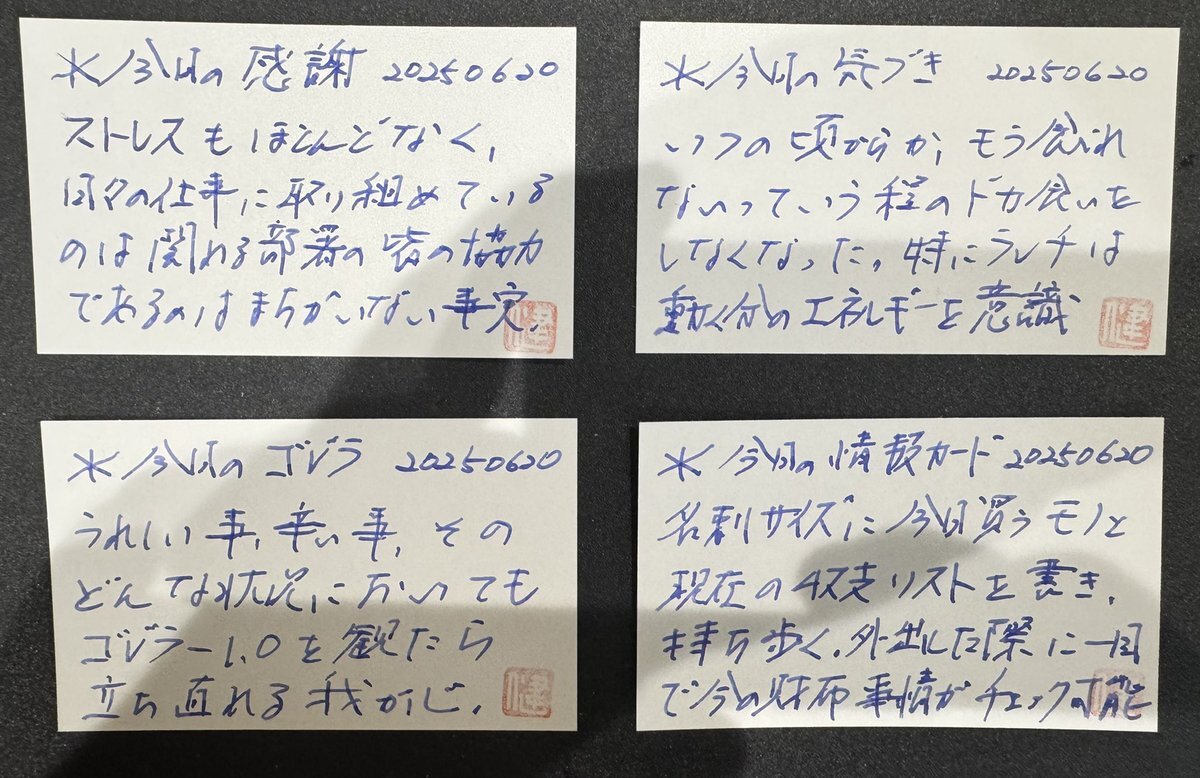 ※今日の感謝 20250620
ストレスもほとんどなく、
日々の仕事に取り組めている
のは関わる部署の皆の協力
であるのはまちがいない事実。
健
※今日の気づき 20250620
いつの頃からか、もう食べれ
ないっていう程のドカ食いを
しなくなった。特にランチは
動く分のエネルギーを意識
健
※今日のゴジラ 20250620
うれしい事、辛い事、その
どんな状況においても
ゴジラ-1.0を観たら
立ち直れる我がじ。
健
※今日の情報カード 20250620
名刺サイズに今日買うモノと
現在の収支リストを書き、
持ち歩く。外出した際に一目
で今の財布事情がチェック可能
健